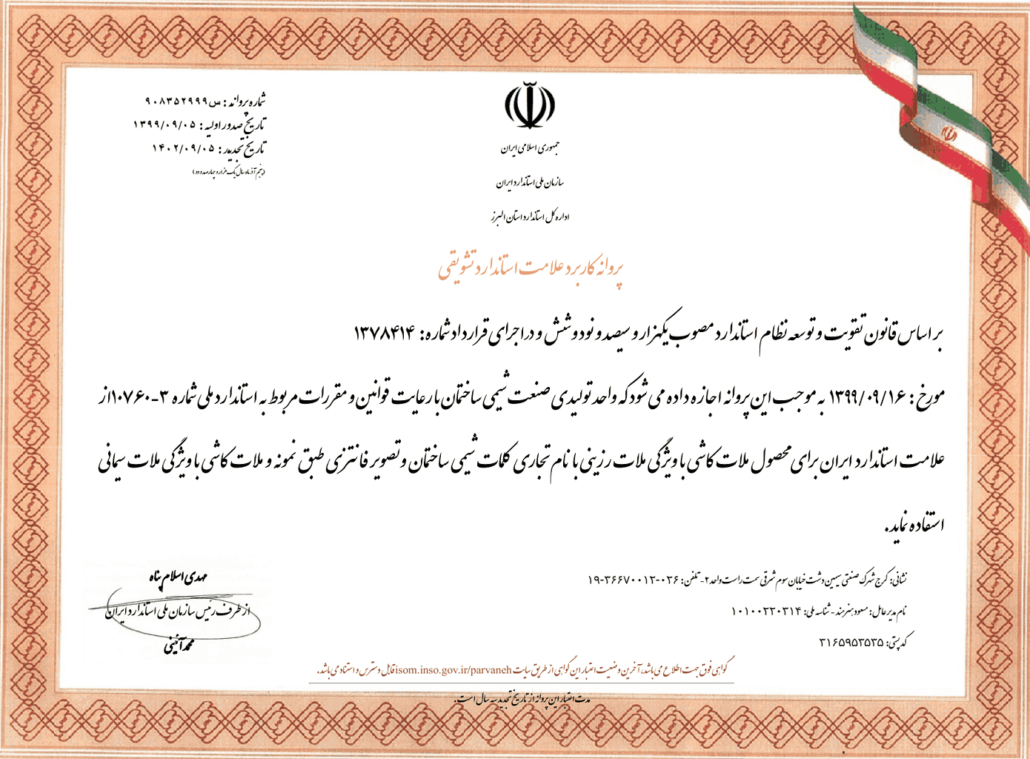 شماره پروانه : س ۹۰۸۳۵۲۹۹۹
تاریخ صدور اولیه : ۱۳۹۹/۰۹/۰۵
تاریخ تجدید : ۱۴۰۲/۰۹/۰۵
(پنجم آذر ماه سال یک هزار و چهارصد و دو)
جمهوری اسلامی ایران
سازمان ملی استاندارد ایران
اداره کل استاندارد استان البرز
پروانه کاربرد علامت استاندارد تشویقی
بر اساس قانون تقویت و توسعه نظام استاندارد مصوب یکهزار و سیصد و نود و شش و در اجرای قرارداد شماره: ۱۳۷۸۴۱۴
مورخ : ۱۳۹۹/۰۹/۱۶ به موجب این پروانه اجازه داده می شود که واحد تولیدی صنعت شیمی ساختمان با رعایت قوانین و مقررات مربوط به استاندارد ملی شماره ۳-۱۰۷۶۰ از
علامت استاندارد ایران برای محصول ملات کاشی با ویژگی ملات رزینی با نام تجاری کلمات شیمی ساختمان و تصویر فانتزی طبق نمونه و ملات کاشی با ویژگی ملات سیمانی
استفاده نماید.
نشانی: کرج شهرک صنعتی سیمین دشت خیابان سوم شرقی سمت راست واحد ۲ - تلفن: ۰۲۶-۳۶۶۷۰۰۱۳-۱۹
نام مدیرعامل: مسعود هنرمند - شناسه ملی: ۱۰۱۰۰۲۲۰۳۱۴
کد پستی: ۳۱۶۵۹۵۳۵۳۵
مهدی اسلام پناه
از طرف رئیس سازمان ملی استاندارد ایران
محمد آئینی
گواهی فوق جهت اطلاع می باشد، آخرین وضعیت اعتبار این گواهی از طریق سایت isom.inso.gov.ir/parvaneh قابل دسترس و استناد می باشد.
مدت اعتبار این پروانه از تاریخ تجدید سه سال است.